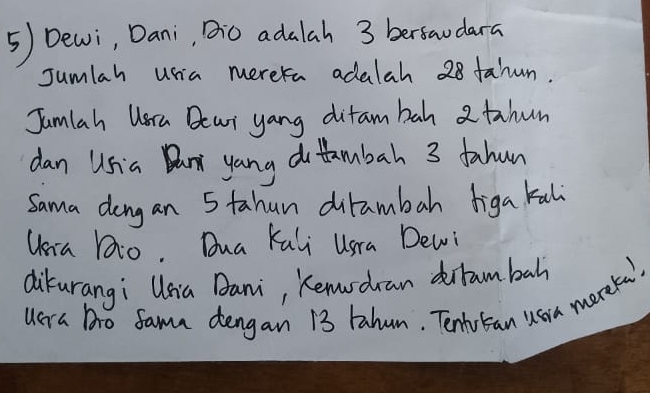 5) Dewi, Dani, Dio adalah 3 bersaudara
Jumlah usia mereka adalah 28 tahun.
Jumlah Usia Dewi yang ditambah 2 tahun
dan Usia Dani yang ditambah 3 tahun
Sama dengan 5 tahun ditambah tiga kali
Usia Dio. Dua kali Usia Dewi
dikurangi Usia Dani, kemudian ditambah
Usia Dio sama dengan 13 tahun. Tentukan usia mereka!